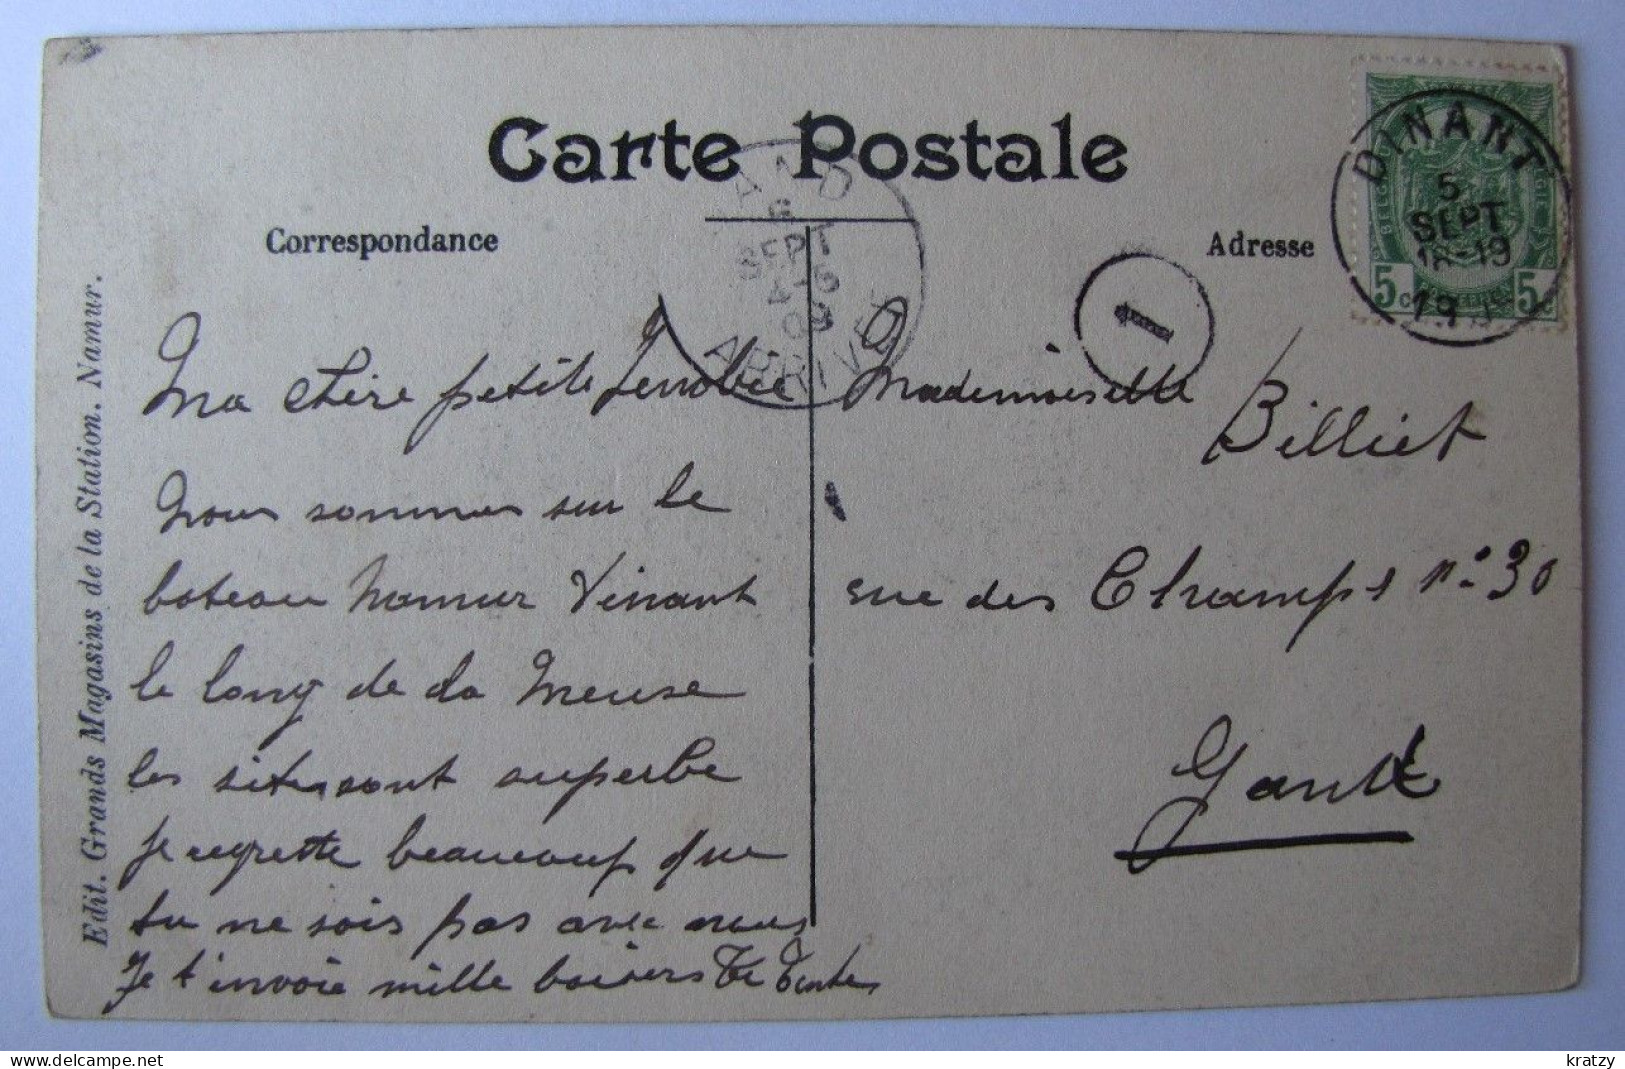 Carte Postale
Correspondance
Adresse
DINANT
5
SEPT
18-19
19
BELG
5c
5c
AND
6
SEPT
ARRIVÉE
1
Edit. Grands Magasins de la Station. Namur.
Ma chère petite
Nous sommes sur le
bateau Namur Dinant
le long de la Meuse
les sites sont superbe
Je regrette beaucoup que
tu ne sois pas avec nous
Je t'invoie mille baisers Ta Tante
Mademoiselle
Billiet
rue des Champs n° 30
Gand
kratzy